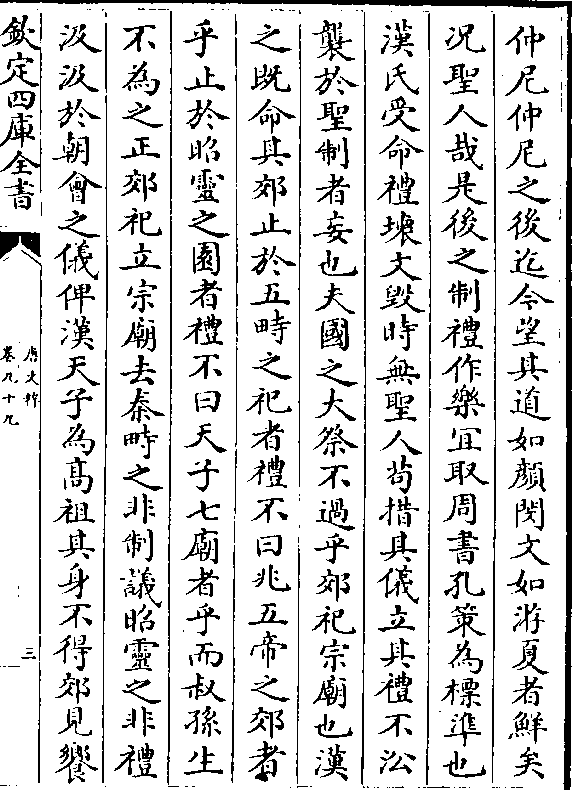 仲尼仲尼之後迄今望其道如顔閔文如游夏者鮮矣
况聖人哉是後之制禮作樂宜取周書孔策為標準也
漢氏受命禮壊文毀時無聖人苟措其儀立其禮不㳂
襲於聖制者妄也夫國之大祭不過乎郊祀宗廟也漢
之既命其郊止於五畤之祀者禮不曰兆五帝之郊者
乎止於昭靈之園者禮不曰天子七廟者乎而叔孫生
不為之正郊祀立宗廟去秦畤之非制議昭靈之非禮
汲汲於朝會之儀俾漢天子為髙祖其身不得郊見饗
欽定四庫全書
唐文粹
卷九十九
三